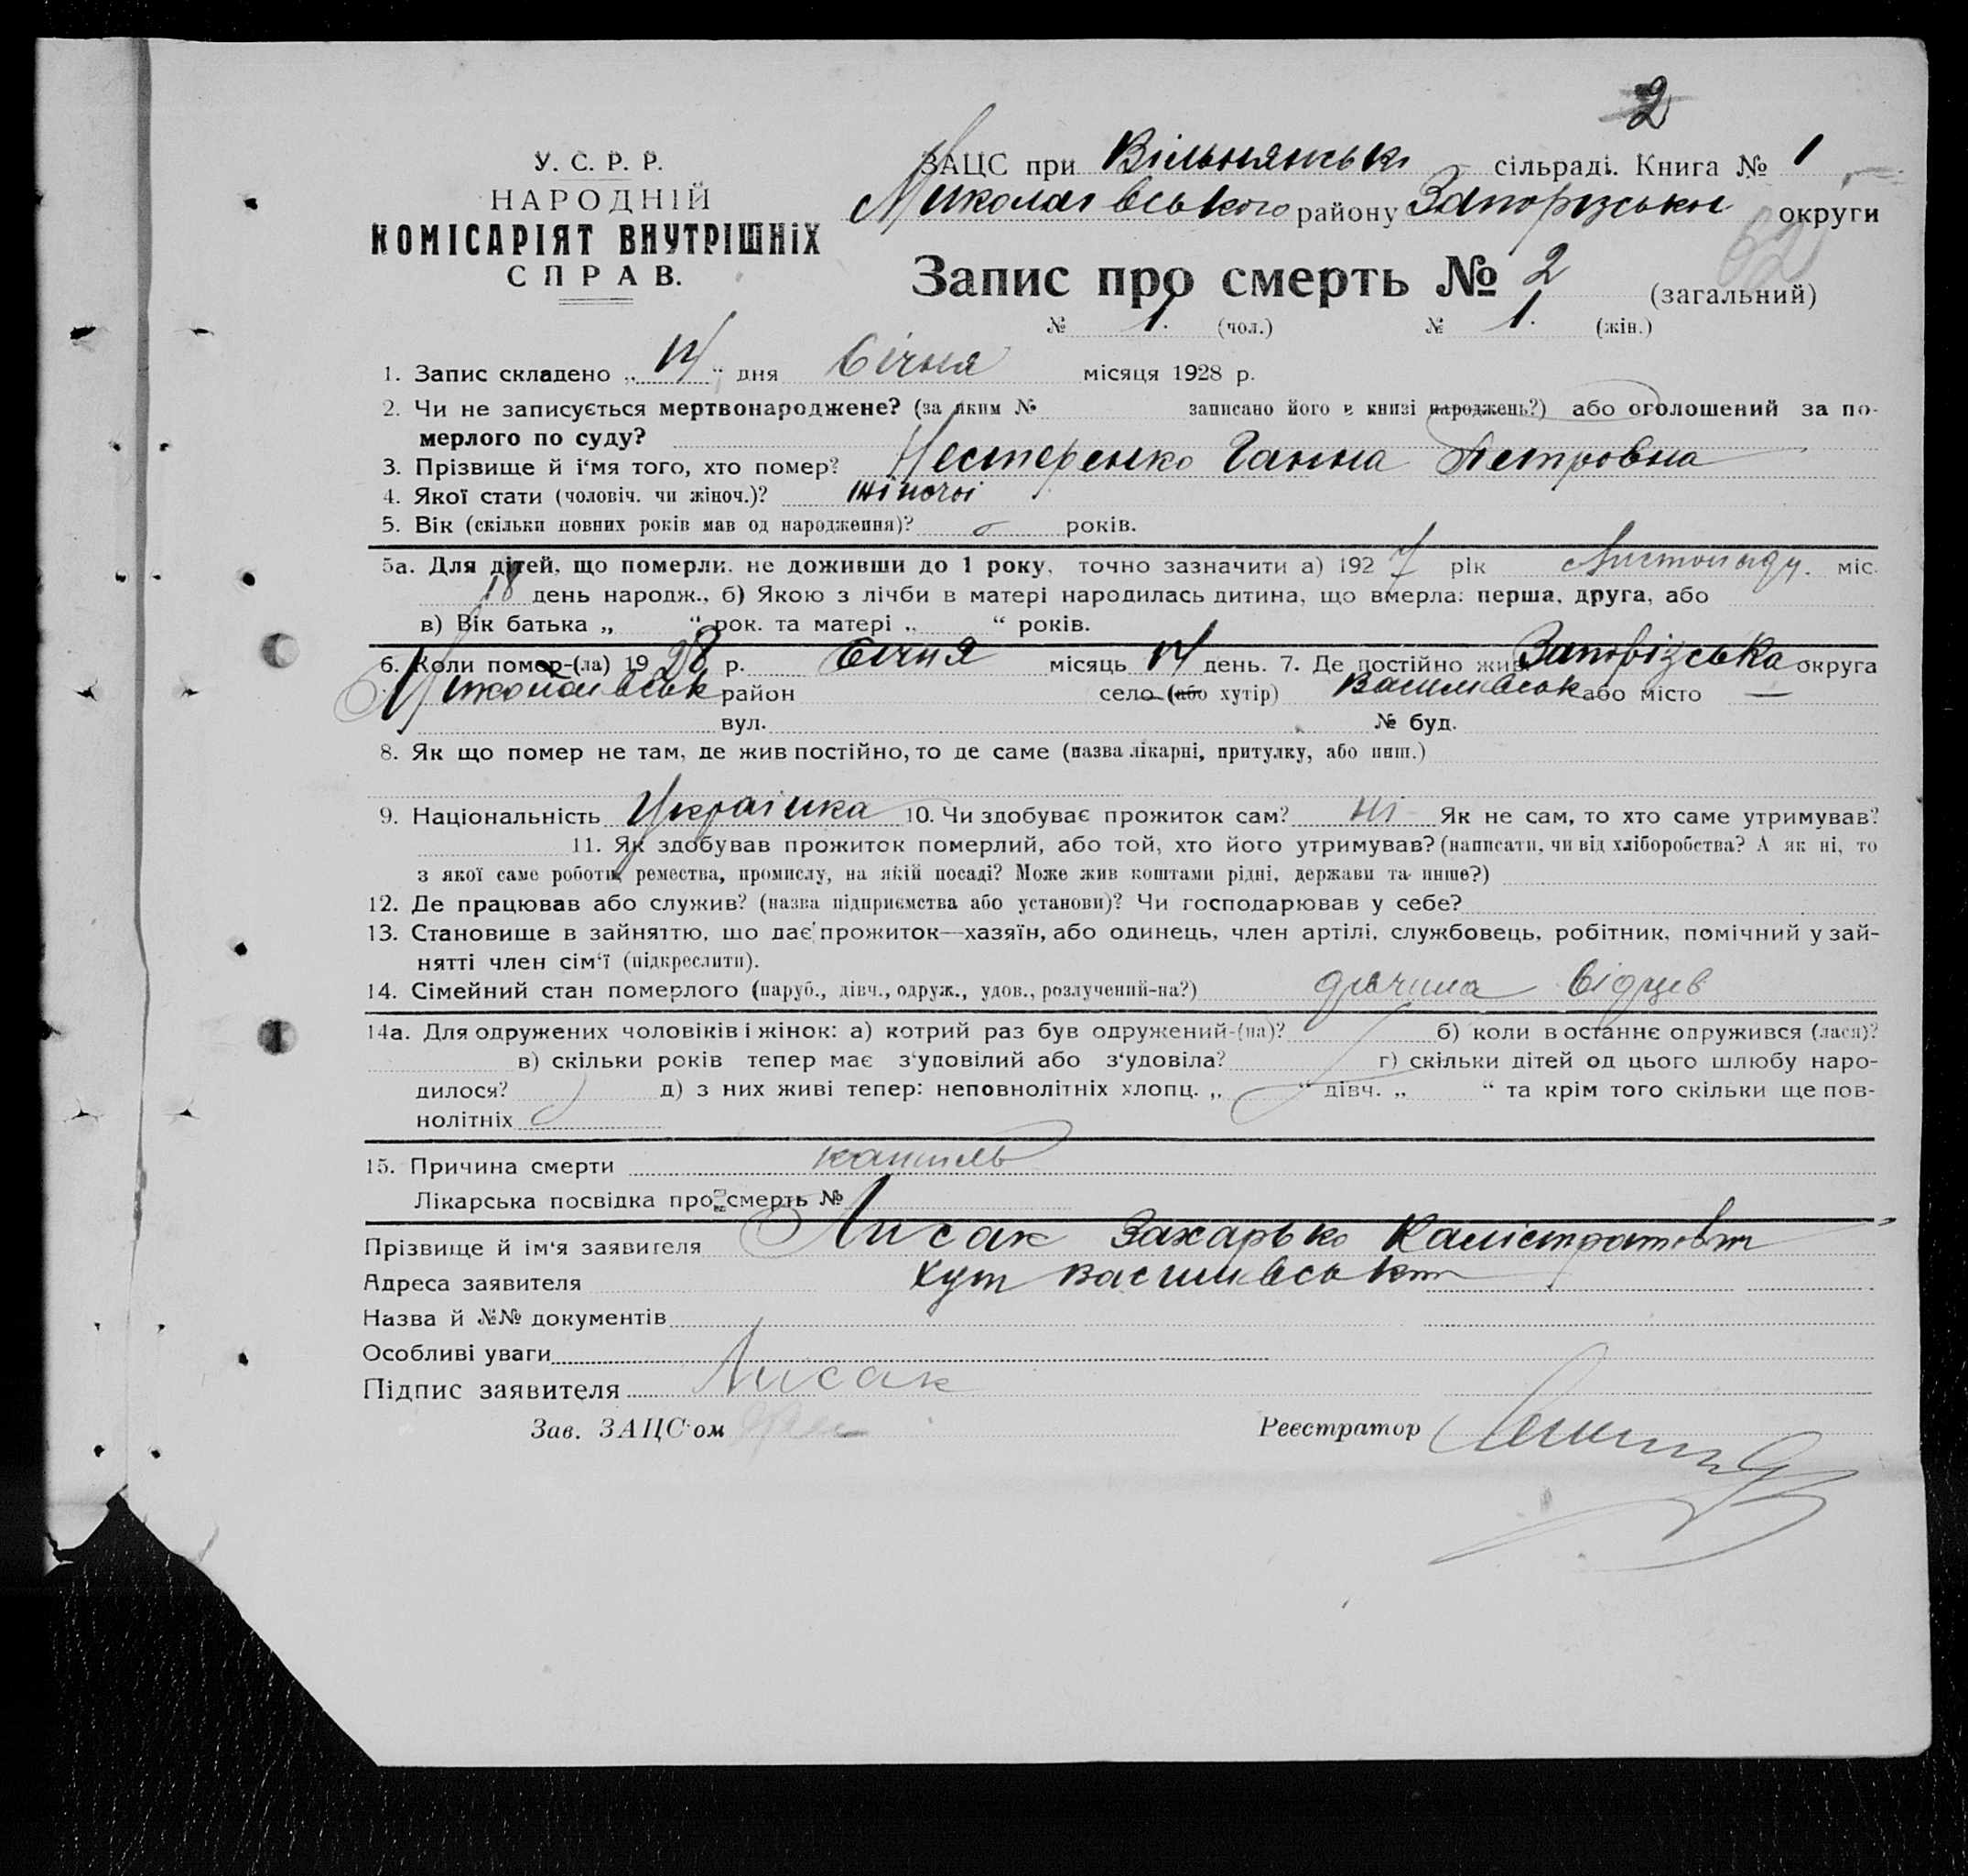 2
У. С. Р. Р.
НАРОДНІЙ
КОМІСАРІЯТ ВНУТРІШНІХ
СПРАВ.
ЗАЦС при Вільнянські сільраді. Книга № 1
Миколаівського району Запорізьки округи
62
Запис про смерть № 2 (загальний)
№ 1. (чол.) № 1. (жін.)
1. Запис складено „14“ дня Січня місяця 1928 р.
2. Чи не записується мертвонароджене? (за яким № записано його в книзі народжень?) або оголошений за по-
мерлого по суду?
3. Прізвище й і‘мя того, хто помер? Нестеренко Ганна Петровна
4. Якої стати (чоловіч. чи жіноч.)? жіночоі
5. Вік (скільки повних років мав од народження)? років.
5а. Для дітей, що померли, не доживши до 1 року, точно зазначити а) 1927 рік Листопаду. міс.
18 день народж., б) Якою з лічби в матері народилась дитина, що вмерла: перша, друга, або
в) Вік батька „ “ рок. та матері „ “ років.
6. Коли помер-(ла) 1928 р. Січня місяць 14 день. 7. Де постійно жив Запорізська округа
Миколаівськ район село (або хутір) Василівськ або місто —
вул. № буд.
8. Як що помер не там, де жив постійно, то де саме (назва лікарні, притулку, або инш.)
9. Національність Украінка 10. Чи здобуває прожиток сам? ні Як не сам, то хто саме утримував?
11. Як здобував прожиток померлий, або той, хто його утримував? (написати, чи від хліборобства? А як ні, то
з якої саме роботи, ремества, промислу, на якій посаді? Може жив коштами рідні, держави та инше?)
12. Де працював або служив? (назва підприємства або установи)? Чи господарював у себе?
13. Становище в зайняттю, що дає прожиток—хазяїн, або одинець, член артілі, службовець, робітник, помічний у зай-
нятті член сім‘ї (підкреслити).
14. Сімейний стан померлого (паруб., дівч., одруж., удов., розлучений-на?)
14а. Для одружених чоловіків і жінок: а) котрий раз був одружений-(на)? б) коли востаннє одружився (лася)?
в) скільки років тепер має з‘удовілий або з‘удовіла? г) скільки дітей од цього шлюбу наро-
дилося? д) з них живі тепер: неповнолітніх хлопц. „ “ дівч. „ “ та крім того скільки ще пов-
нолітніх
15. Причина смерти кашиль
Лікарська посвідка про смерть №
Прізвище й ім‘я заявителя Лисак Захарько Калістратовт
Адреса заявителя хут Василівськ
Назва й №№ документів
Особливі уваги
Підпис заявителя Лисак
Зав. ЗАЦС‘ом Реєстратор